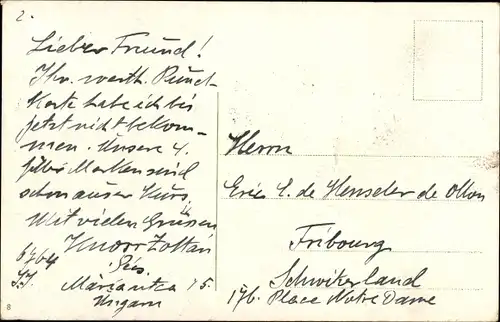 2.
Lieber Freund!
Ihr. werth. Rund-
Karte habe ich bis
jetzt nicht bekom-
men. Unsere 4.
Marken sind
schon ausser Kurs.
Mit vielen Grüssen
Knoor Zoltán
Pécs.
Mária utca 15.
Ungarn
Herrn
Eric C. de Henseler de Ollon
Fribourg
Schwitzerland
176. Place Notre Dame
8